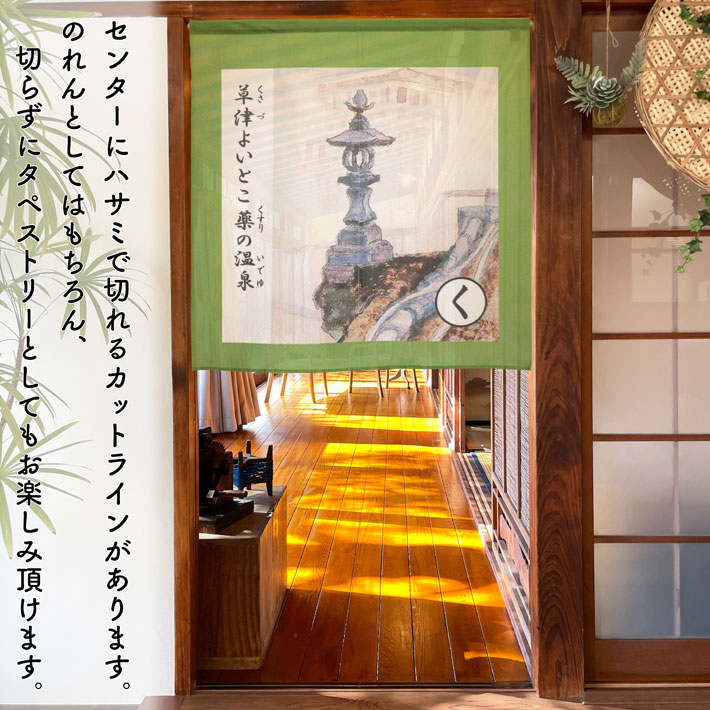 センターにハサミで切れるカットラインがあります。
のれんとしてはもちろん、
切らずにタペストリーとしてもお楽しみ頂けます。
くさづ
草津よいとこ
くすり いでゆ
薬の温泉
く